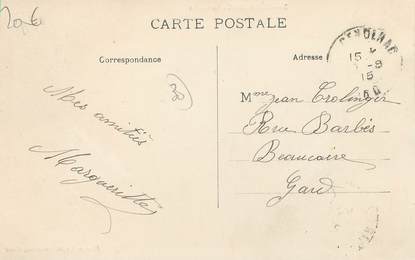 20€
CARTE POSTALE
Correspondance
Adresse
GENOLHAC
15
-8
15
30
Mes amitiés
Marguerite
Mme Jean Trolinger
Rue Barbès
Beaucaire
Gard